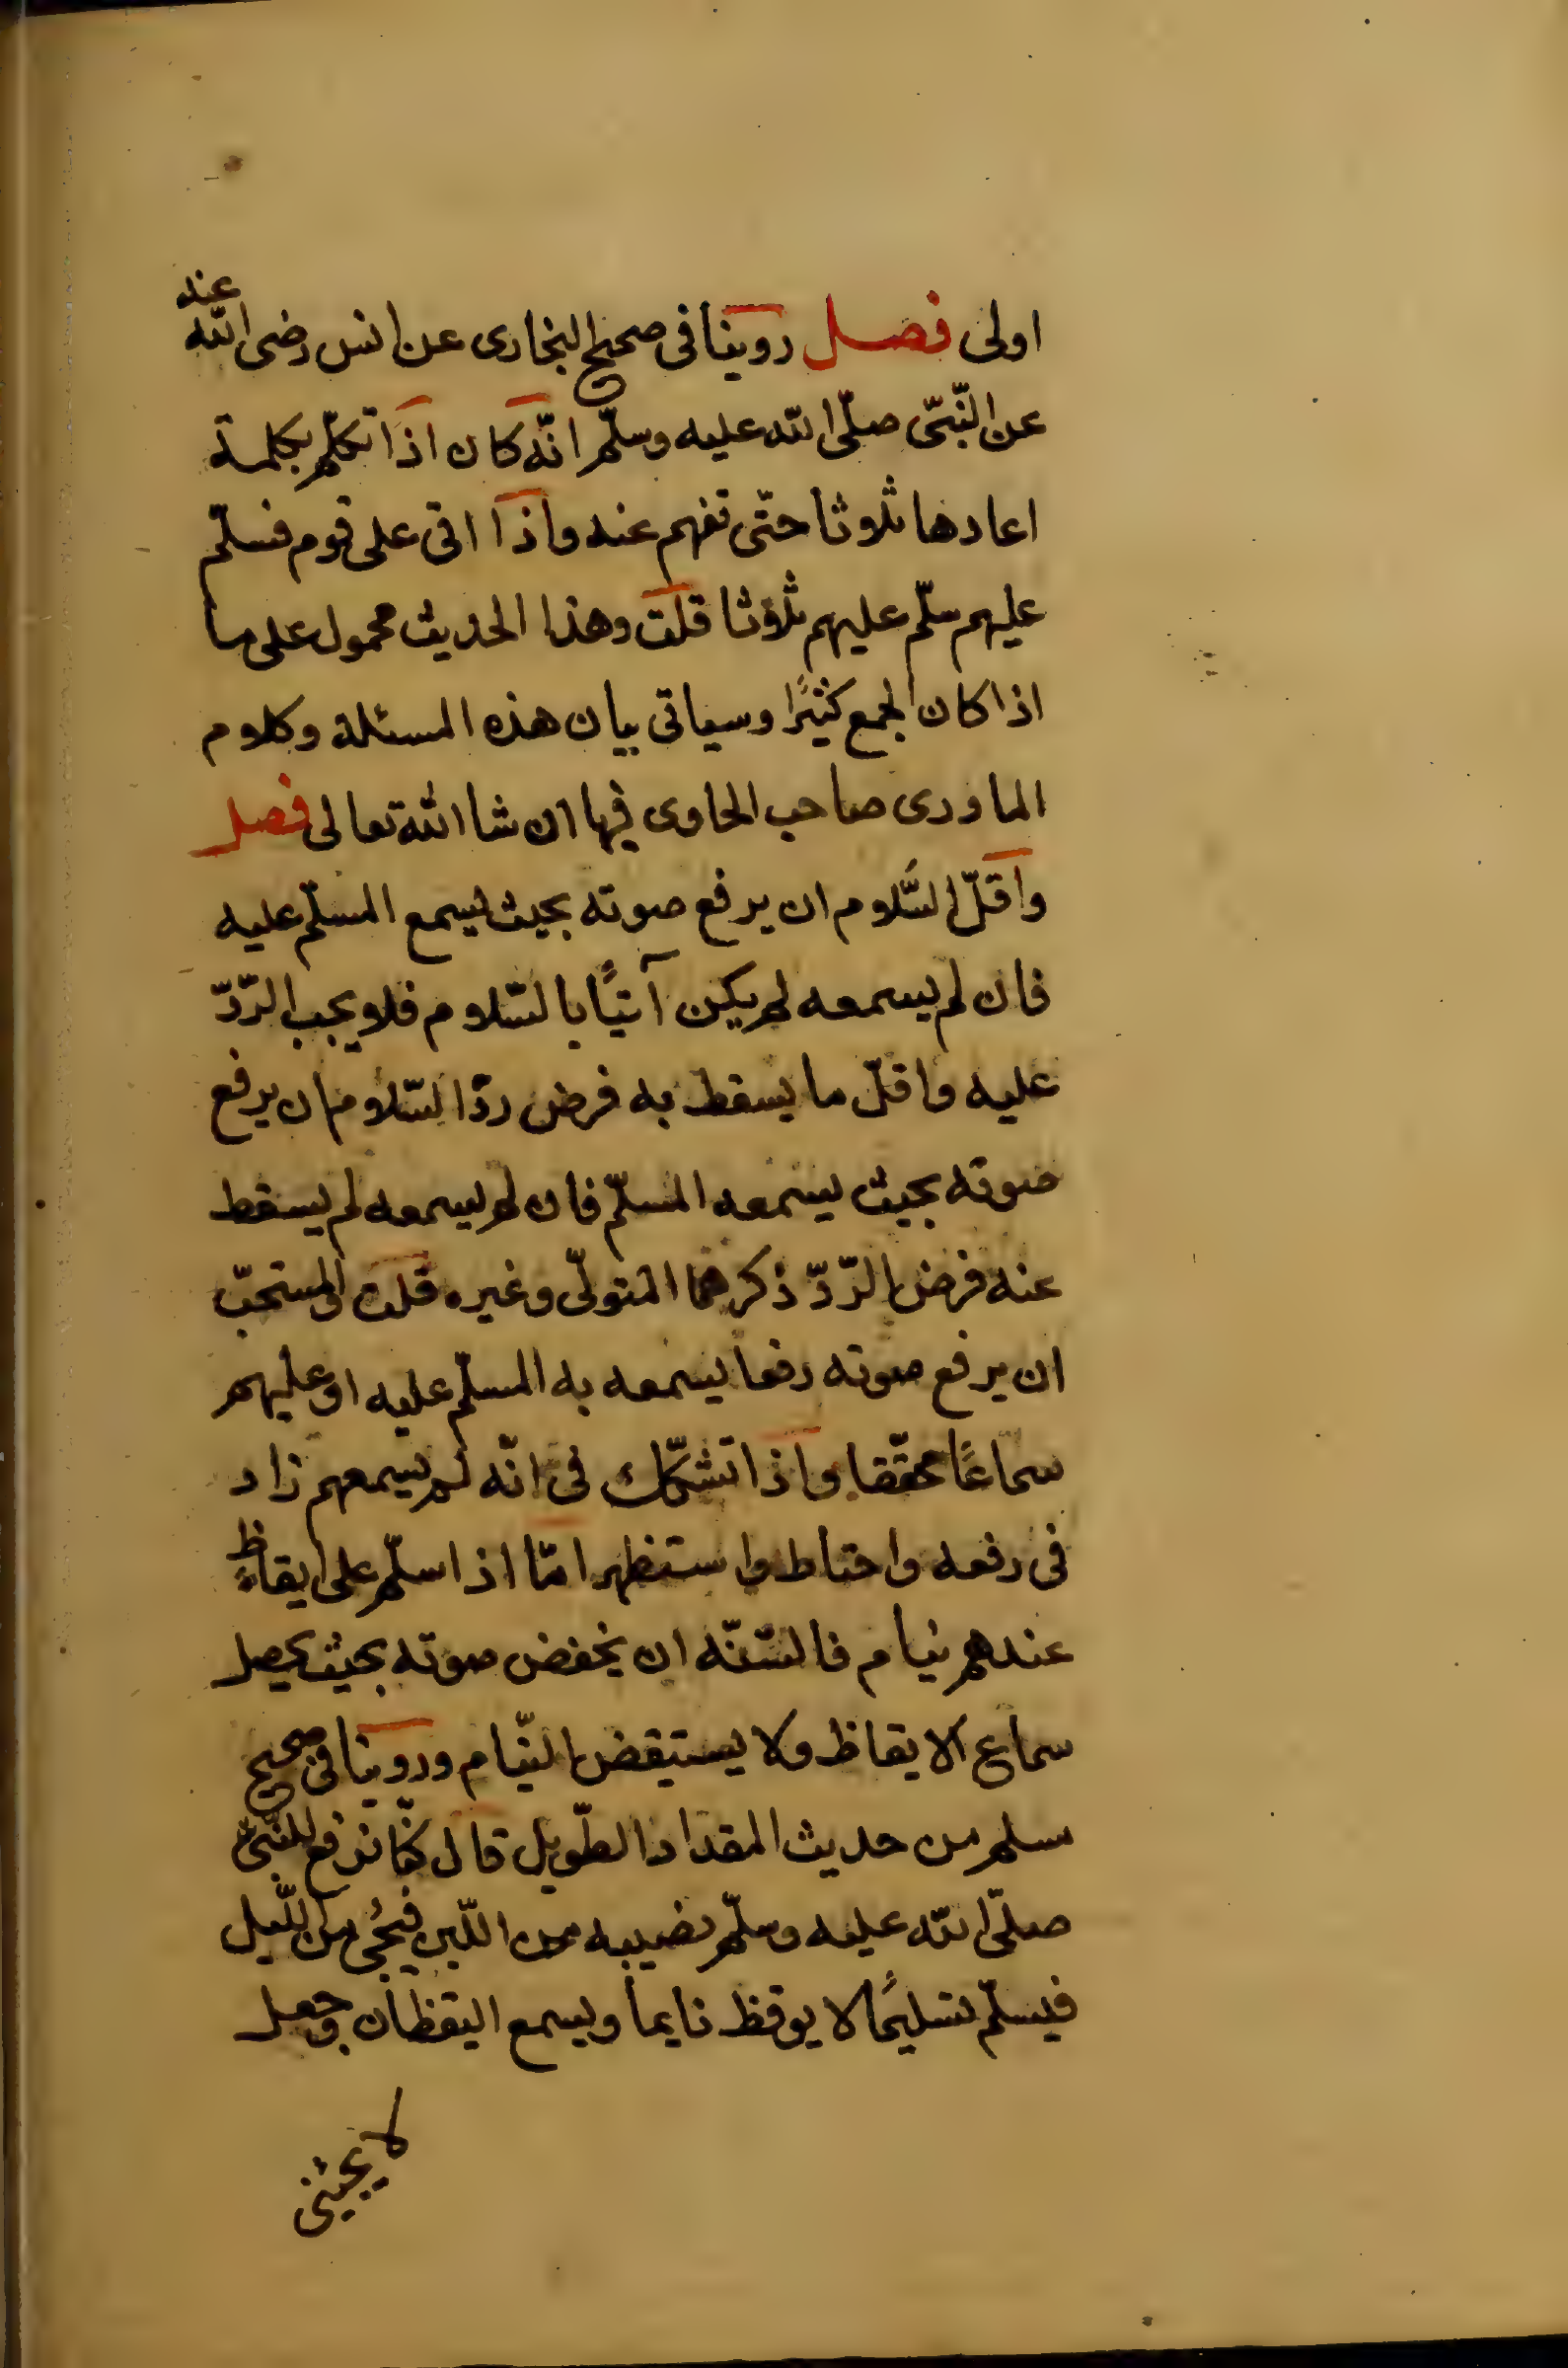 اولى فصل روينا فى صحيح البخارى عن انس رضى الله عنه
عن النّبىّ صلّى الله عليه وسلّم انّه كان اذا تكلّم بكلمة
اعادها ثلوثا حتّى تفهم عنه واذا اتى على قوم فسلّم
عليهم سلّم عليهم ثلوثا قلت وهذا الحديث محمول على ما
اذا كان الجمع كثيرًا وسياتى بيان هذه المسئلة وكلوم
الماوردى صاحب الحاوى فيها ان شا الله تعالى فصل
واقلّ السَّلوم ان يرفع صوته بحيث يسمع المسلّم عليه
فان لم يسمعه لم يكن آتيًا بالسّلوم فلو يجب الرّدّ
عليه واقلّ ما يسقط به فرض ردّ السّلوم ان يرفع
صوته بحيث يسمعه المسلّم فان لم يسمعه لم يسقط
عنه فرض الرّدّ ذكرهما المتولّى وغيره قلت والمستحبّ
ان يرفع صوته رفعا يسمعه به المسلّم عليه او عليهم
سماعًا محقّقا واذا تشكّك فى انّه لم يسمعهم زاد
فى رفعه واحتاط واستظهر امّا اذا سلّم على ايقاظ
عندهم نيام فالسّنّه ان يخفض صوته بحيث يحصل
سماع الايقاظ ولا يستيقض النّيام وروينا فى صحيح
مسلم من حديث المقداد الطّويل قال كنّا نرفع للنّبىّ
صلّى الله عليه وسلّم نصيبه من اللّبن فيجئ من اللّيل
فيسلّم تسليمًا لا يوقظ نايما ويسمع اليقظان وجعل
لا يجيئنى